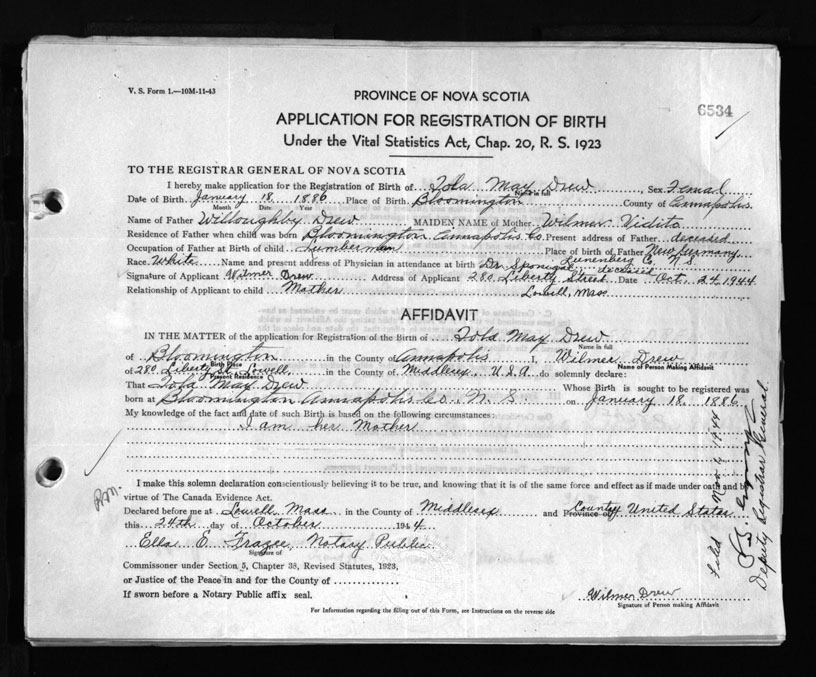 V. S. Form 1.—10M-11-43
PROVINCE OF NOVA SCOTIA
6534
APPLICATION FOR REGISTRATION OF BIRTH
Under the Vital Statistics Act, Chap. 20, R. S. 1923
TO THE REGISTRAR GENERAL OF NOVA SCOTIA
I hereby make application for the Registration of Birth of Zola May Drew Sex Femal
Name in full
Date of Birth January 18 1886 Place of Birth Bloomington County of Annapolis
Month Date Year
Name of Father Willoughby Drew MAIDEN NAME of Mother Wilmer Vidito
Residence of Father when child was born Bloomington Annapolis Co Present address of Father deceased
Occupation of Father at Birth of child Lumberman Place of birth of Father New Germany
Lunenburg Co. N S
Race White Name and present address of Physician in attendance at birth Dr. deceased
Signature of Applicant Wilmer Drew Address of Applicant 280 Liberty Street Date Oct. 24 1944
Relationship of Applicant to child Mother Lowell, Mass
AFFIDAVIT
IN THE MATTER of the application for Registration of the Birth of Zola May Drew
Name in full
of Bloomington in the County of Annapolis I, Wilmer Drew
Birth Place Name of Person Making Affidavit
of 280 Liberty St Lowell in the County of Middlesex, U.S.A do solemnly declare:
Present Residence
That Zola May Drew Whose Birth is sought to be registered was
born at Bloomington Annapolis Co. N. S. on January 18 1886
My knowledge of the fact and date of such Birth is based on the following circumstances:
I am her Mother
I make this solemn declaration conscientiously believing it to be true, and knowing that it is of the same force and effect as if made under oath and by
virtue of The Canada Evidence Act.
Declared before me at Lowell Mass in the County of Middlesex and Province of Country United States
this 24th day of October 1944
Ella E. Frazee, Notary Public
Signature of
Commissioner under Section 5, Chapter 38, Revised Statutes, 1923,
or Justice of the Peace in and for the County of
If sworn before a Notary Public affix seal.
Wilmer Drew
Signature of Person making Affidavit
For Information regarding the filling out of this Form, see Instructions on the reverse side
Filed Nov 1944
Deputy Registrar General